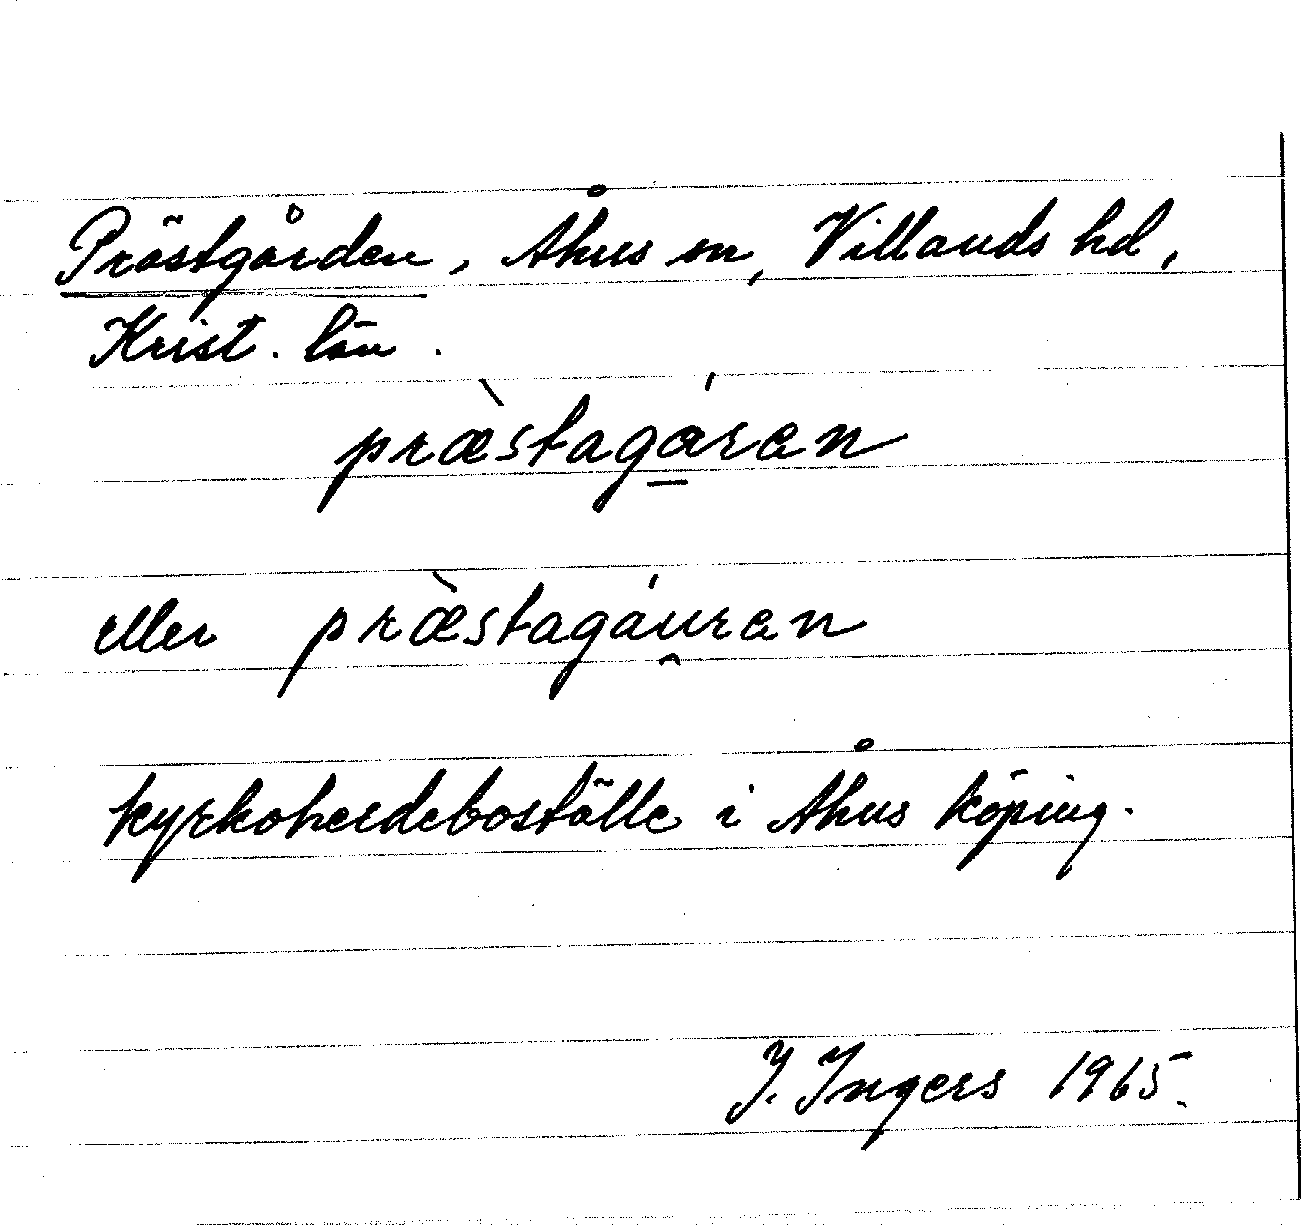 Prästgården, Åhus sn, Villands hd,
Krist. län.
præ̀stagá̱ran
eller præ̀stagáu̯ran
kyrkoherdeboställe i Åhus köping.
I. Ingers 1965.